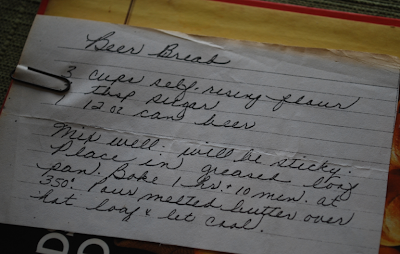 Beer Bread
3 cups self rising flour
Tbsp sugar
1 12 oz can beer
Mix well. will be sticky.
Place in greased loaf
pan. Bake 1 hr. + 10 min. at
350°. Pour melted butter over
hot loaf & let cool.
DO